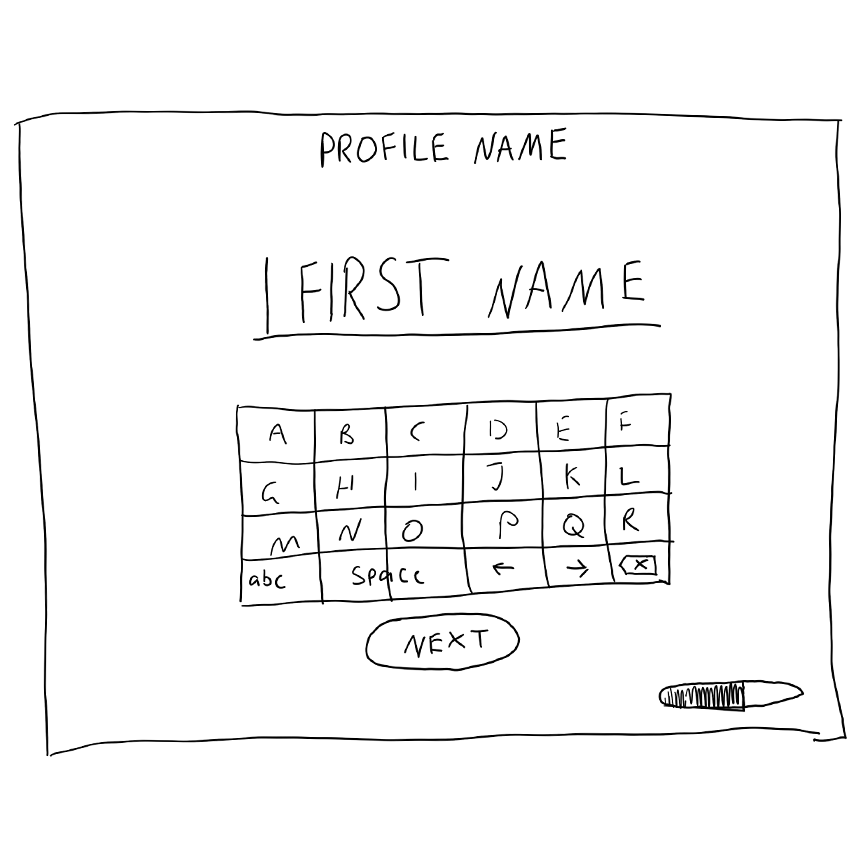 PROFILE NAME
FIRST NAME
A B C D E F
G H I J K L
M N O P Q R
abc space ← →
NEXT